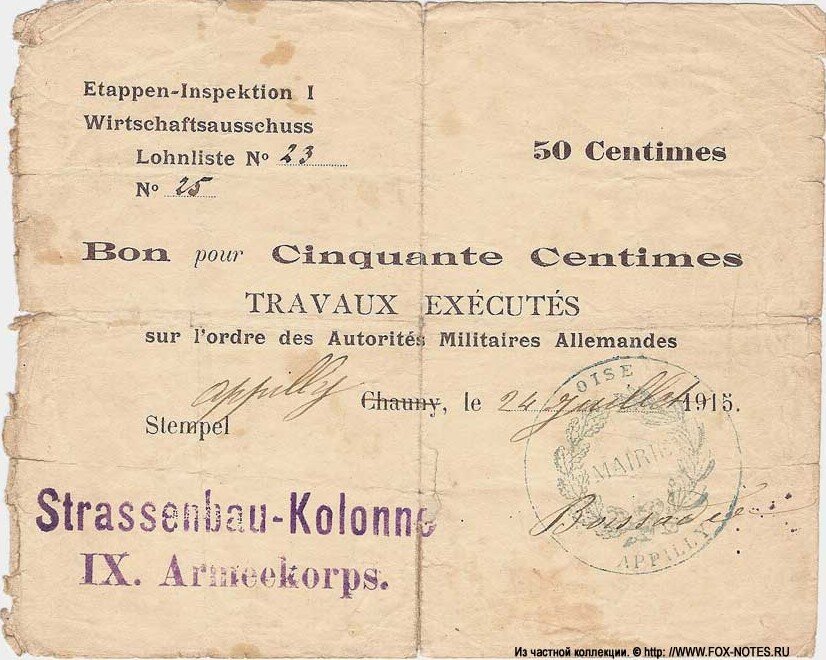 Etappen-Inspektion I
Wirtschaftsausschuss
Lohnliste No 23
No 25
50 Centimes
Bon pour Cinquante Centimes
TRAVAUX EXÉCUTÉS
sur l'ordre des Autorités Militaires Allemandes
appilly Chauny, le 24 juillet 1915.
Stempel
OISE
MAIRIE
APPILLY
Strassenbau-Kolonne
IX. Armeekorps.
Из частной коллекции. © http: //WWW.FOX-NOTES.RU